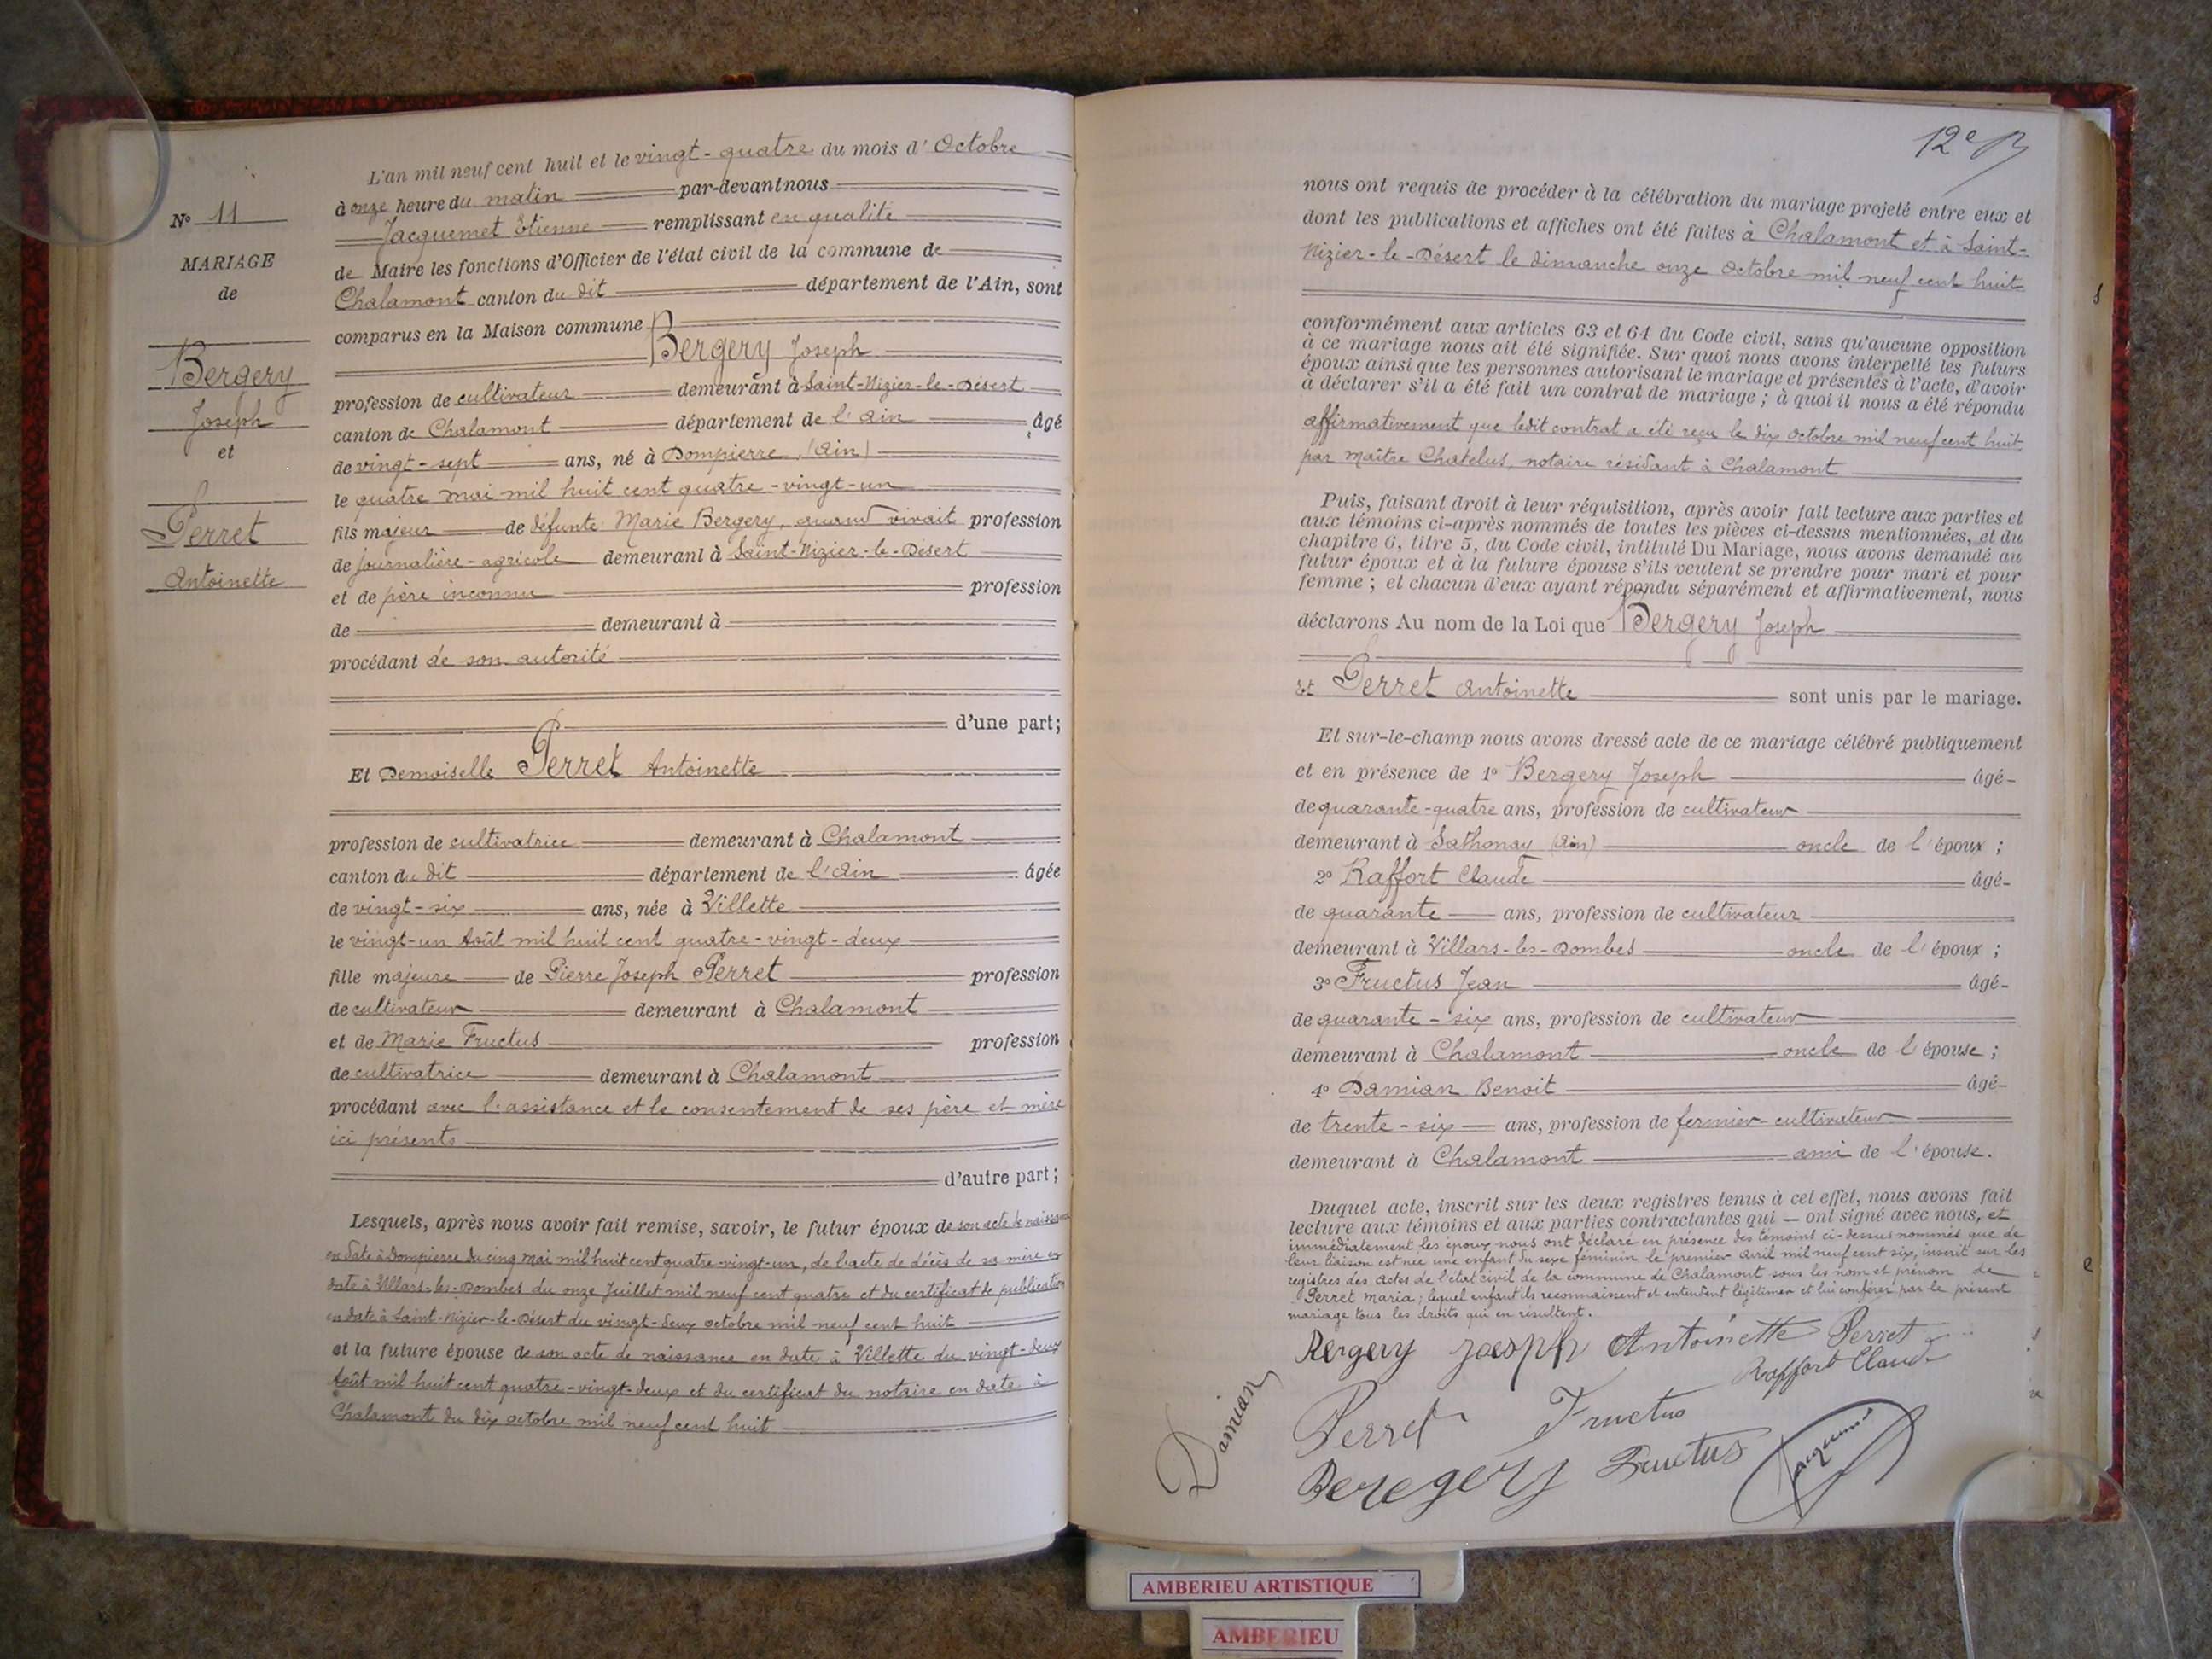 L'an mil neuf cent huit et le vingt-quatre du mois d'Octobre
à onze heure du matin par-devant nous
Jacquemet Etienne remplissant en qualité
de Maire les fonctions d'Officier de l'état civil de la commune de
Chalamont canton du dit département de l'Ain, sont
comparus en la Maison commune
Bergery Joseph
profession de cultivateur demeurant à Saint-Nizier-le-Désert
canton de Chalamont département de l'Ain âgé
de vingt-sept ans, né à Dompierre (Ain)
le quatre mai mil huit cent quatre-vingt-un
fils majeur de défunte Marie Bergery, quand vivait profession
de journalière-agricole demeurant à Saint-Nizier-le-Désert
et de père inconnu profession
de demeurant à
procédant de son autorité
d'une part;
Et Demoiselle Perret Antoinette
profession de cultivatrice demeurant à Chalamont
canton du dit département de l'Ain âgée
de vingt-six ans, née à Villette
le vingt-un Août mil huit cent quatre-vingt-deux
fille majeure de Pierre Joseph Perret profession
de cultivateur demeurant à Chalamont
et de Marie Fructus profession
de cultivatrice demeurant à Chalamont
procédant avec l'assistance et le consentement de ses père et mère
ici présents
d'autre part;
Lesquels, après nous avoir fait remise, savoir, le futur époux de son acte de naissance
en date à Dompierre du cinq mai mil huit cent quatre-vingt-un, de l'acte de décès de sa mère en
date à Villars-les-Dombes du onze Juillet mil neuf cent quatre et du certificat de publication
en date à Saint-Nizier-le-Désert du vingt-deux octobre mil neuf cent huit
et la future épouse de son acte de naissance en date à Villette du vingt-deux
Août mil huit cent quatre-vingt-deux et du certificat du notaire en date à
Chalamont du dix octobre mil neuf cent huit
N° 11
MARIAGE
de
Bergery
Joseph
et
Perret
Antoinette
12e
nous ont requis de procéder à la célébration du mariage projeté entre eux et
dont les publications et affiches ont été faites à Chalamont et à Saint-
Nizier-le-Désert le dimanche onze Octobre mil neuf cent huit
conformément aux articles 63 et 64 du Code civil, sans qu'aucune opposition
à ce mariage nous ait été signifiée. Sur quoi nous avons interpellé les futurs
époux ainsi que les personnes autorisant le mariage et présentes à l'acte, d'avoir
à déclarer s'il a été fait un contrat de mariage; à quoi il nous a été répondu
affirmativement que ledit contrat a été reçu le dix Octobre mil neuf cent huit
par Maître Chatelus, notaire résidant à Chalamont
Puis, faisant droit à leur réquisition, après avoir fait lecture aux parties et
aux témoins ci-après nommés de toutes les pièces ci-dessus mentionnées, et du
chapitre 6, titre 5, du Code civil, intitulé Du Mariage, nous avons demandé au
futur époux et à la future épouse s'ils veulent se prendre pour mari et pour
femme; et chacun d'eux ayant répondu séparément et affirmativement, nous
déclarons Au nom de la Loi que Bergery Joseph
et Perret Antoinette sont unis par le mariage.
Et sur-le-champ nous avons dressé acte de ce mariage célébré publiquement
et en présence de 1° Bergery Joseph âgé
de quarante-quatre ans, profession de cultivateur
demeurant à Sathonay (Ain) oncle de l'époux;
2° Raffort Claude âgé
de quarante ans, profession de cultivateur
demeurant à Villars-les-Dombes oncle de l'époux;
3° Fructus Jean âgé
de quarante-six ans, profession de cultivateur
demeurant à Chalamont oncle de l'épouse;
4° Damian Benoit âgé
de trente-six ans, profession de fermier-cultivateur
demeurant à Chalamont ami de l'épouse.
Duquel acte, inscrit sur les deux registres tenus à cet effet, nous avons fait
lecture aux témoins et aux parties contractantes qui — ont signé avec nous, et
immédiatement les époux nous ont déclaré en présence des témoins ci-dessus nommés que de
leur liaison est née une enfant du sexe féminin le premier avril mil neuf cent six, inscrit sur les
registres des actes de l'état civil de la commune de Chalamont sous les nom et prénom de
Perret Maria; lequel enfant ils reconnaissent et entendent légitimer et lui conférer par le présent
mariage tous les droits qui en résultent.
Bergery Joesph Antoinette Perret
Raffort Claude
Damian Perret Fructus
Beregery Fructus Jacquemet
AMBERIEU ARTISTIQUE
AMBERIEU